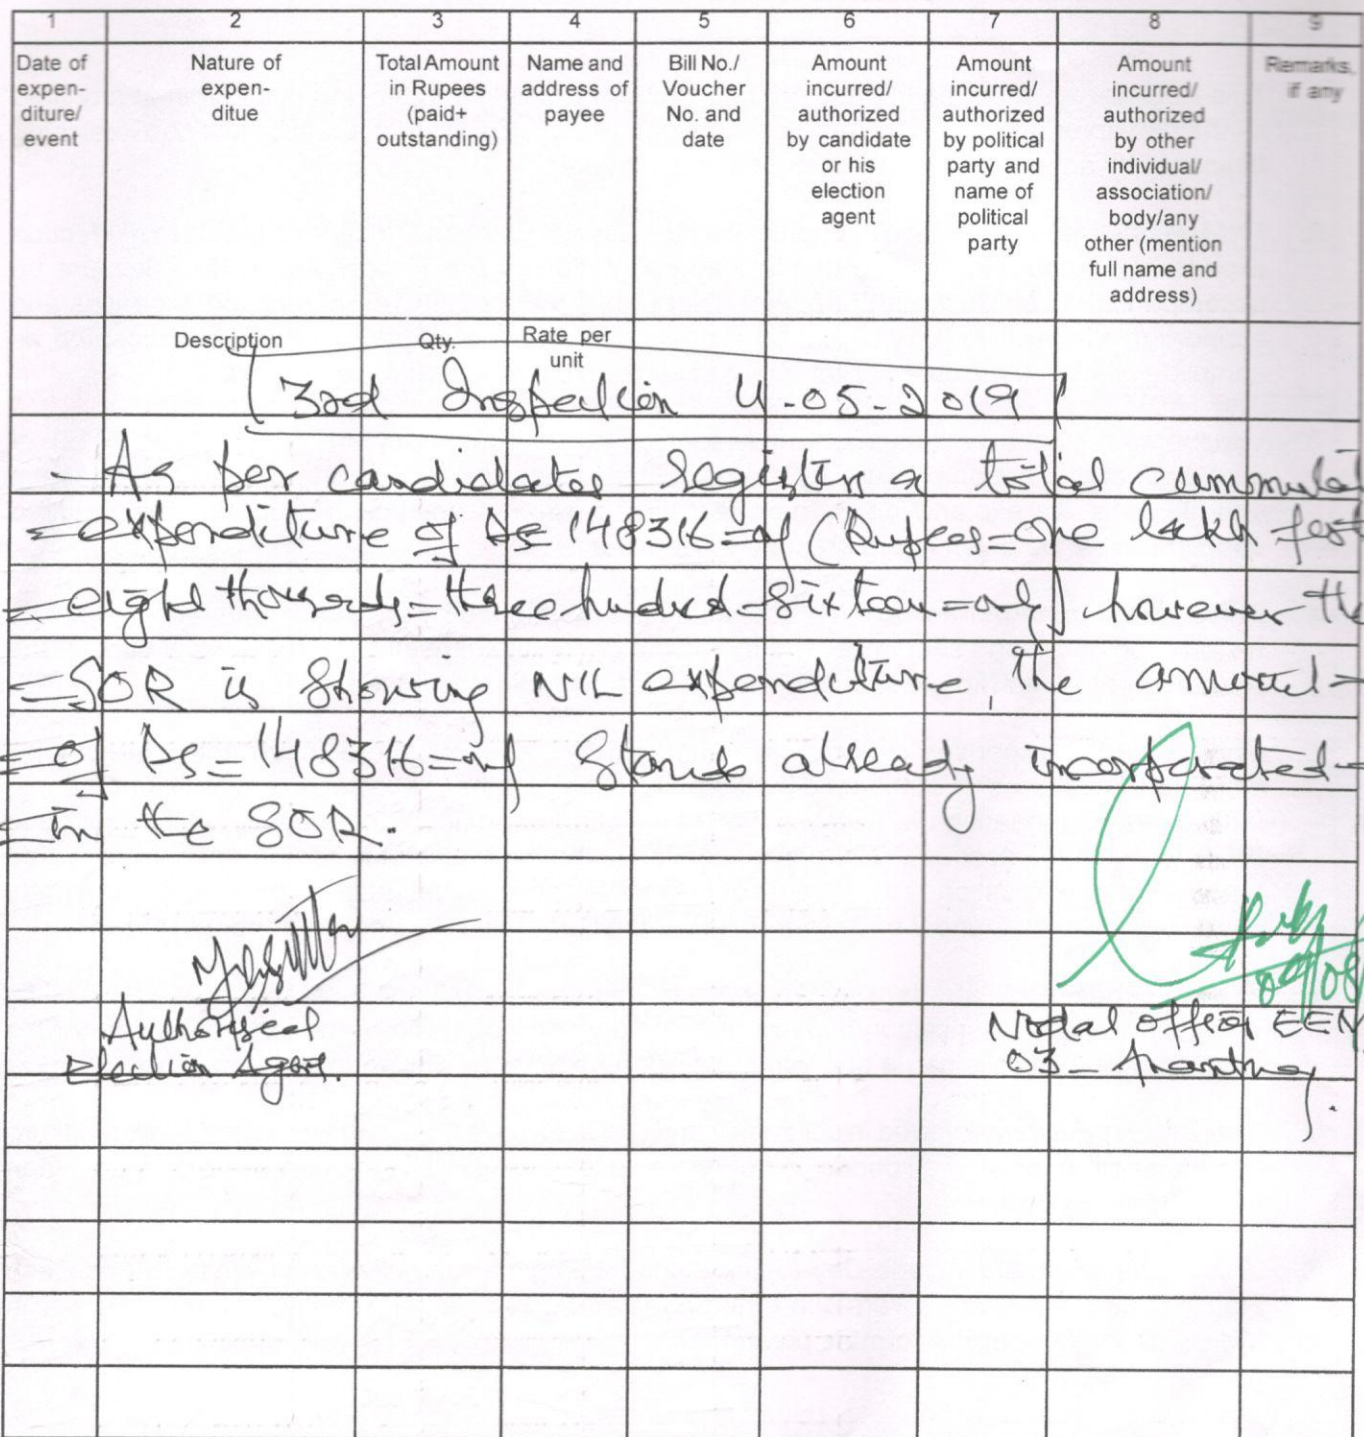 1 2 3 4 5 6 7 8 9
Date of expen- diture/ event
Nature of expen- ditue
Total Amount in Rupees (paid+ outstanding)
Name and address of payee
Bill No./ Voucher No. and date
Amount incurred/ authorized by candidate or his election agent
Amount incurred/ authorized by political party and name of political party
Amount incurred/ authorized by other individual/ association/ body/any other (mention full name and address)
Remarks, if any
Description Qty. Rate per unit
3rd Inspection 4-05-2019
As per candidates register a total cummulat
expenditure of Rs 148316=only (Rupees=one lakh fort
eight thousands=three hundred=sixteen=only) however the
SOR is showing NIL expenditure, the amount
of Rs=148316=only stands already incorporated
in the SOR.
Authorised
Election Agent.
Nodal officer EEM
03-Anantnag.